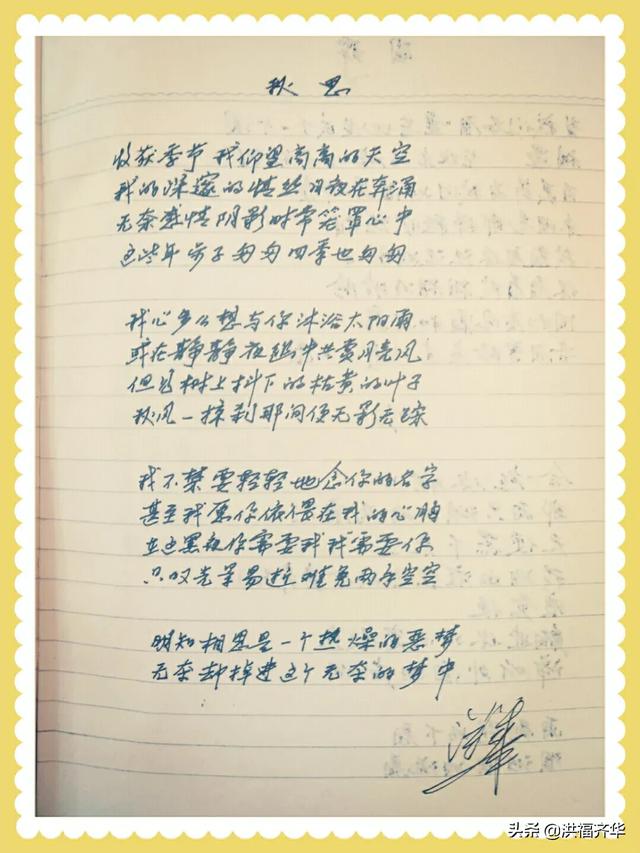 秋思
收获季节 我仰望高高的天空
我的深邃的情丝日夜在奔涌
无奈感情阴影时常笼罩心中
这些年步子匆匆四季也匆匆
我心多么想与你沐浴太阳雨
或在静静夜幽中共赏月亮风
但是树上抖下的枯黄的叶子
秋风一掠刹那间便无影无踪
我不禁要轻轻地念你的名字
甚至我愿你依偎在我的心胸
在这黑夜你需要我我需要你
只叹光景易逝难免两手空空
明知相思是一个热燥的恶梦
无奈却掉进这个无奈的梦中
洪华
头条 @洪福齐华